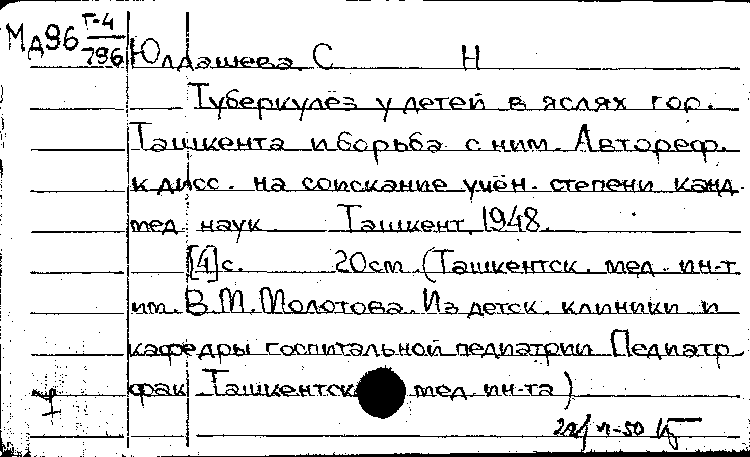 Мд96 Г-4/796
Юлдашева С Н
Туберкулёз у детей в яслях гор.
Ташкента и борьба с ним. Автореф.
к дисс. на соискание учён. степени канд.
мед. наук Ташкент, 1948.
[4]с. 20см. (Ташкентск. мед. ин-т
им. В.М. Молотова. Из детск. клиники и
кафедры госпитальной педиатрии Педиатр.
фак Ташкентск мед. ин-та)
п-50